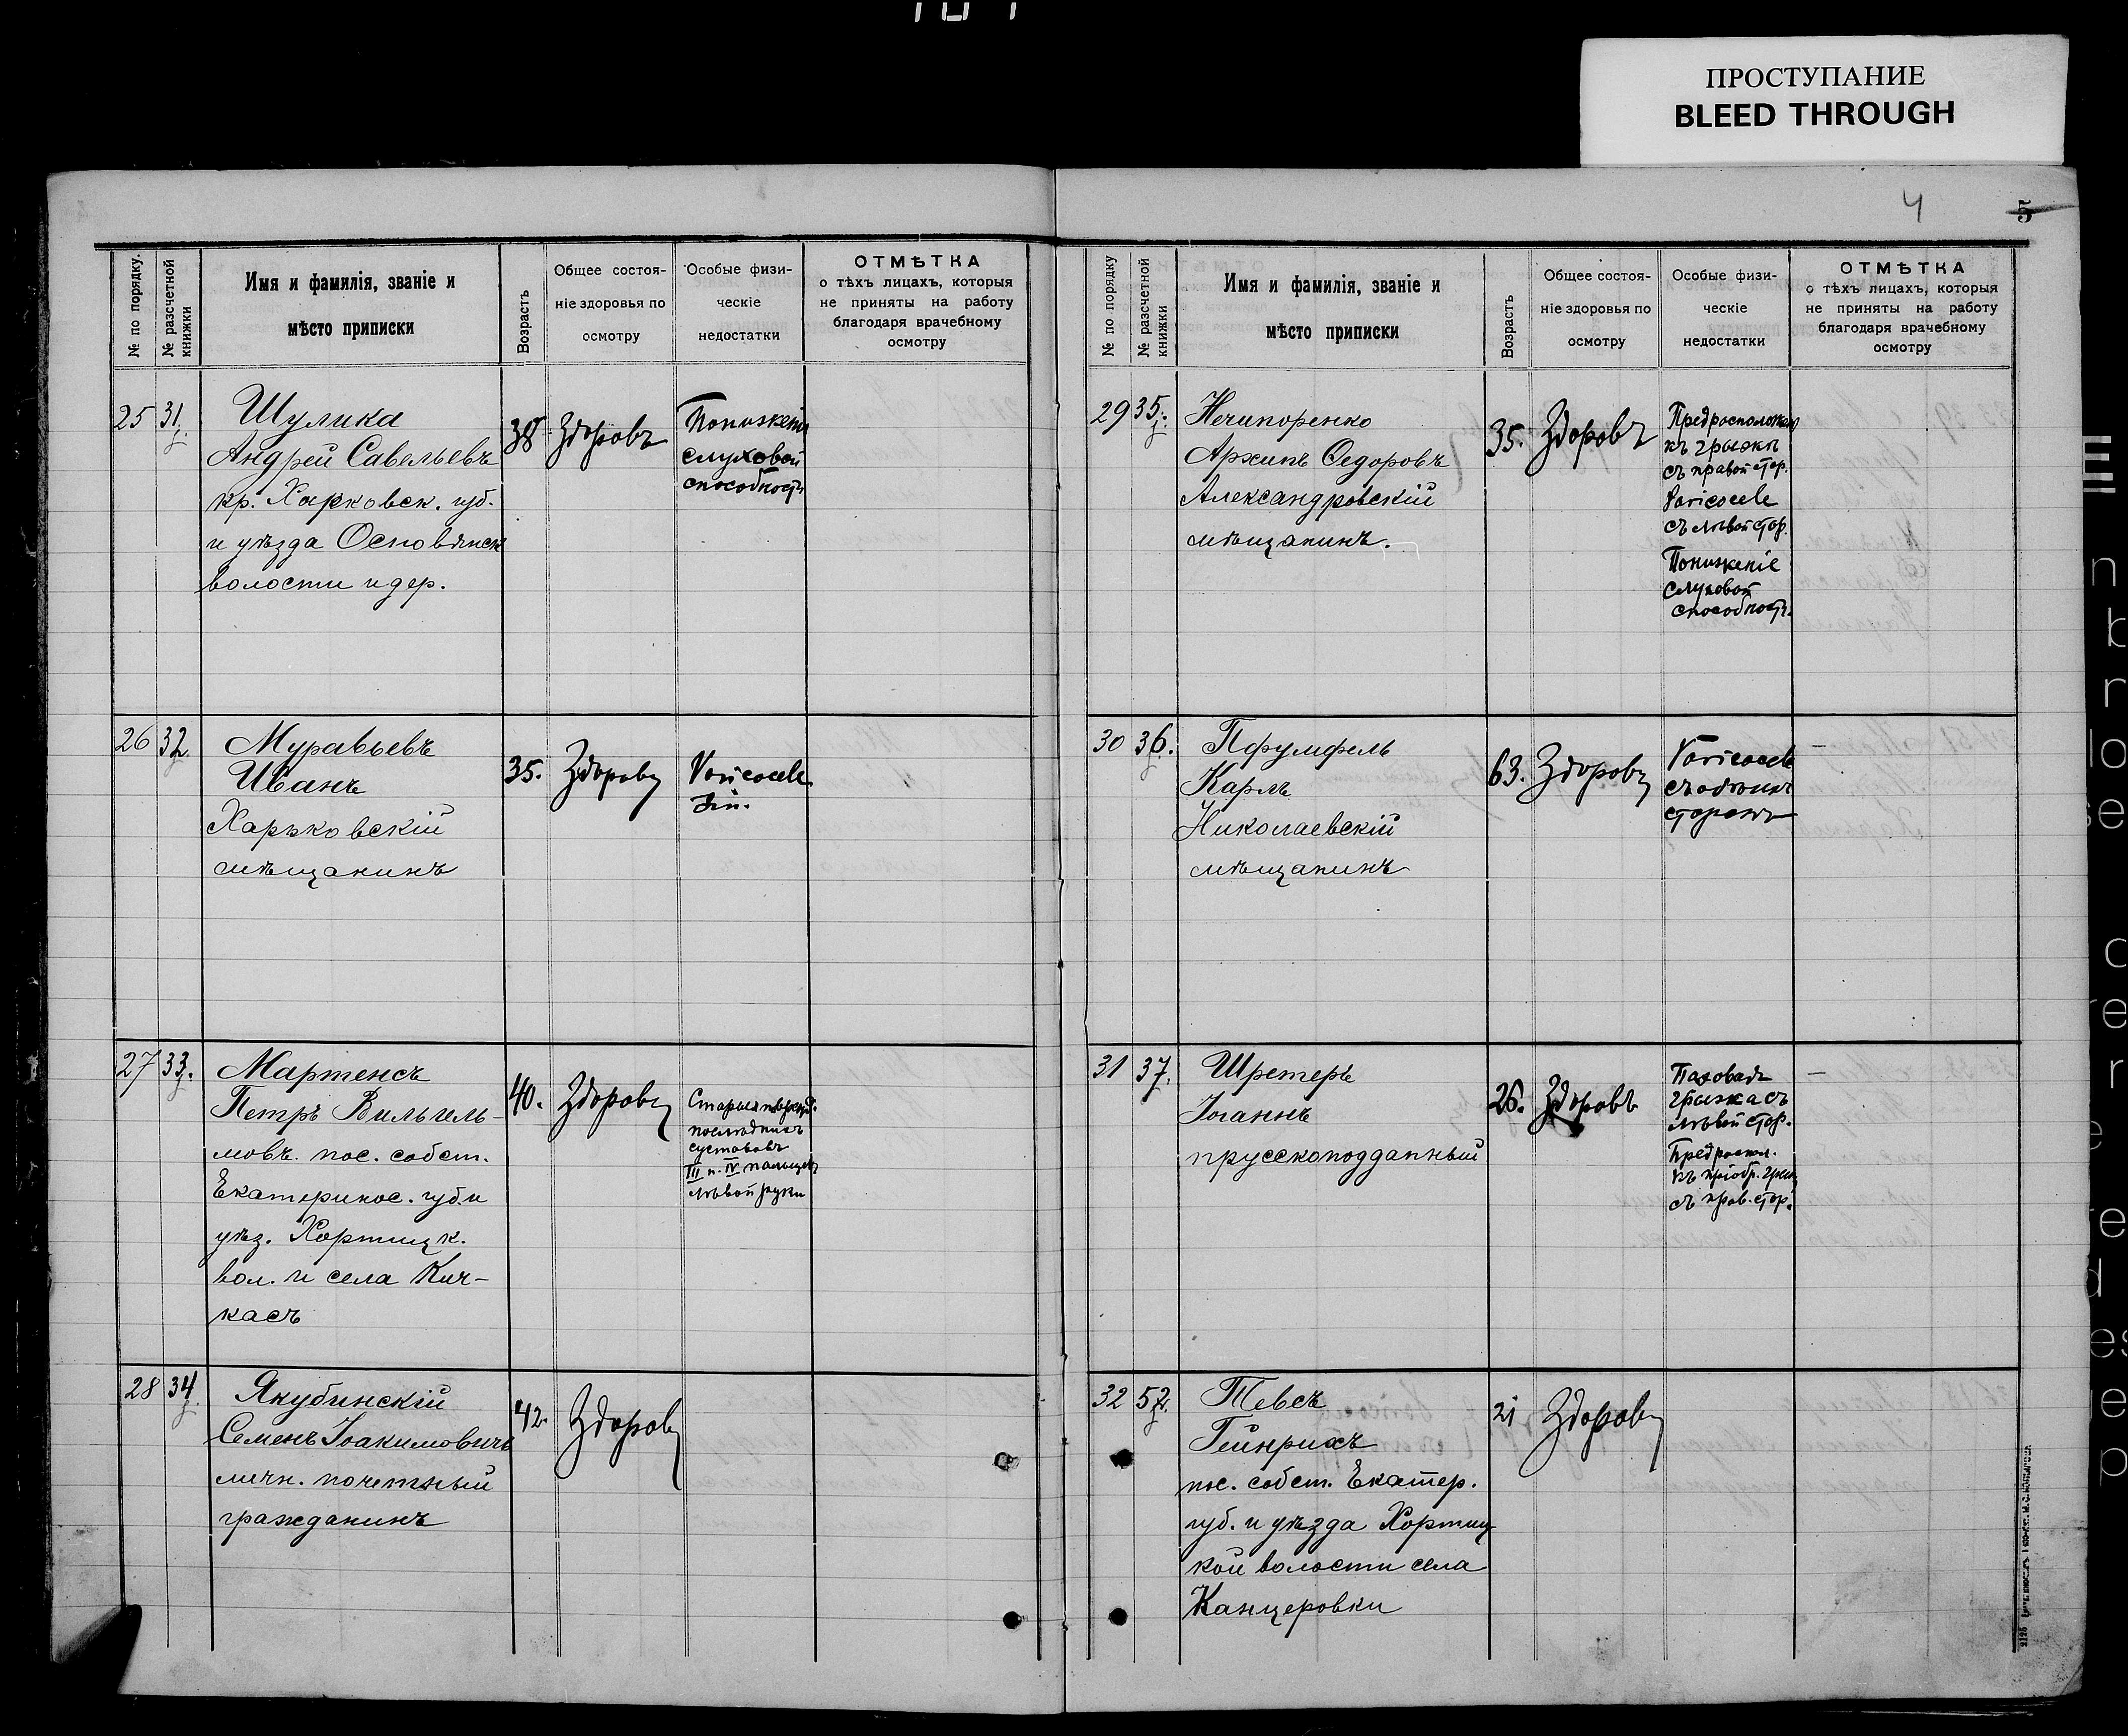 ПРОСТУПАНИЕ
BLEED THROUGH
4
5
№ по порядку.
№ разсчетной книжки
Имя и фамилія, званіе и
мѣсто приписки
Возрастъ
Общее состоя-
ніе здоровья по
осмотру
Особые физи-
ческіе
недостатки
ОТМѢТКА
о тѣхъ лицахъ, которыя
не приняты на работу
благодаря врачебному
осмотру
25 31. Шулика
Андрей Савельевъ
кр. Харковск. губ.
и уѣзда Основянск
волости и дер.
38 Здоровъ
Понижені
слуховой
способност
26 32. Муравьевъ
Иванъ
Харьковскій
мѣщанинъ
35. Здоровъ
Varicocele
sin.
27 33. Мартенсъ
Петръ Вильгель-
мовъ. пос. собст.
Екатеринос. губ. и
уѣз. Хортицк.
вол. и села Кич-
касъ
40. Здоровъ
Старыя поврежд.
послѣднихъ
суставовъ
III и. IV пальцевъ
лѣвой руки
28 34. Якубинскій
Семенъ Іоакимовичъ
личн. почетный
гражданинъ
42. Здоровъ
№ по порядку
№ разсчетной книжки
Имя и фамилія, званіе и
мѣсто приписки
Возрастъ
Общее состоя-
ніе здоровья по
осмотру
Особые физи-
ческіе
недостатки
ОТМѢТКА
о тѣхъ лицахъ, которыя
не приняты на работу
благодаря врачебному
осмотру
29 35. Нечипоренко
Архипъ Ѳедоровъ
Александровскій
мѣщанинъ.
35. Здоровъ
Предрасположен
къ грыжѣ
съ правой стор.
Varicocele
съ лѣвой стор.
Пониженіе
слуховой
способност.
30 36. Пфумфель
Карлъ
Николаевскій
мѣщанинъ
63. Здоровъ
Varicocele
съ обѣихъ
сторонъ
31 37. Шретеръ
Іоганнъ
прусскоподданный
26. Здоровъ
Паховая
грыжа съ
лѣвой стор.
Предраспол.
къ пріобр. грыж
съ прав. стор.
32 52. Тевсъ
Гейнрихъ
пос. собст. Екатер.
губ. и уѣзда Хортиц
кой волости села
Канцеровки
21 Здоровъ